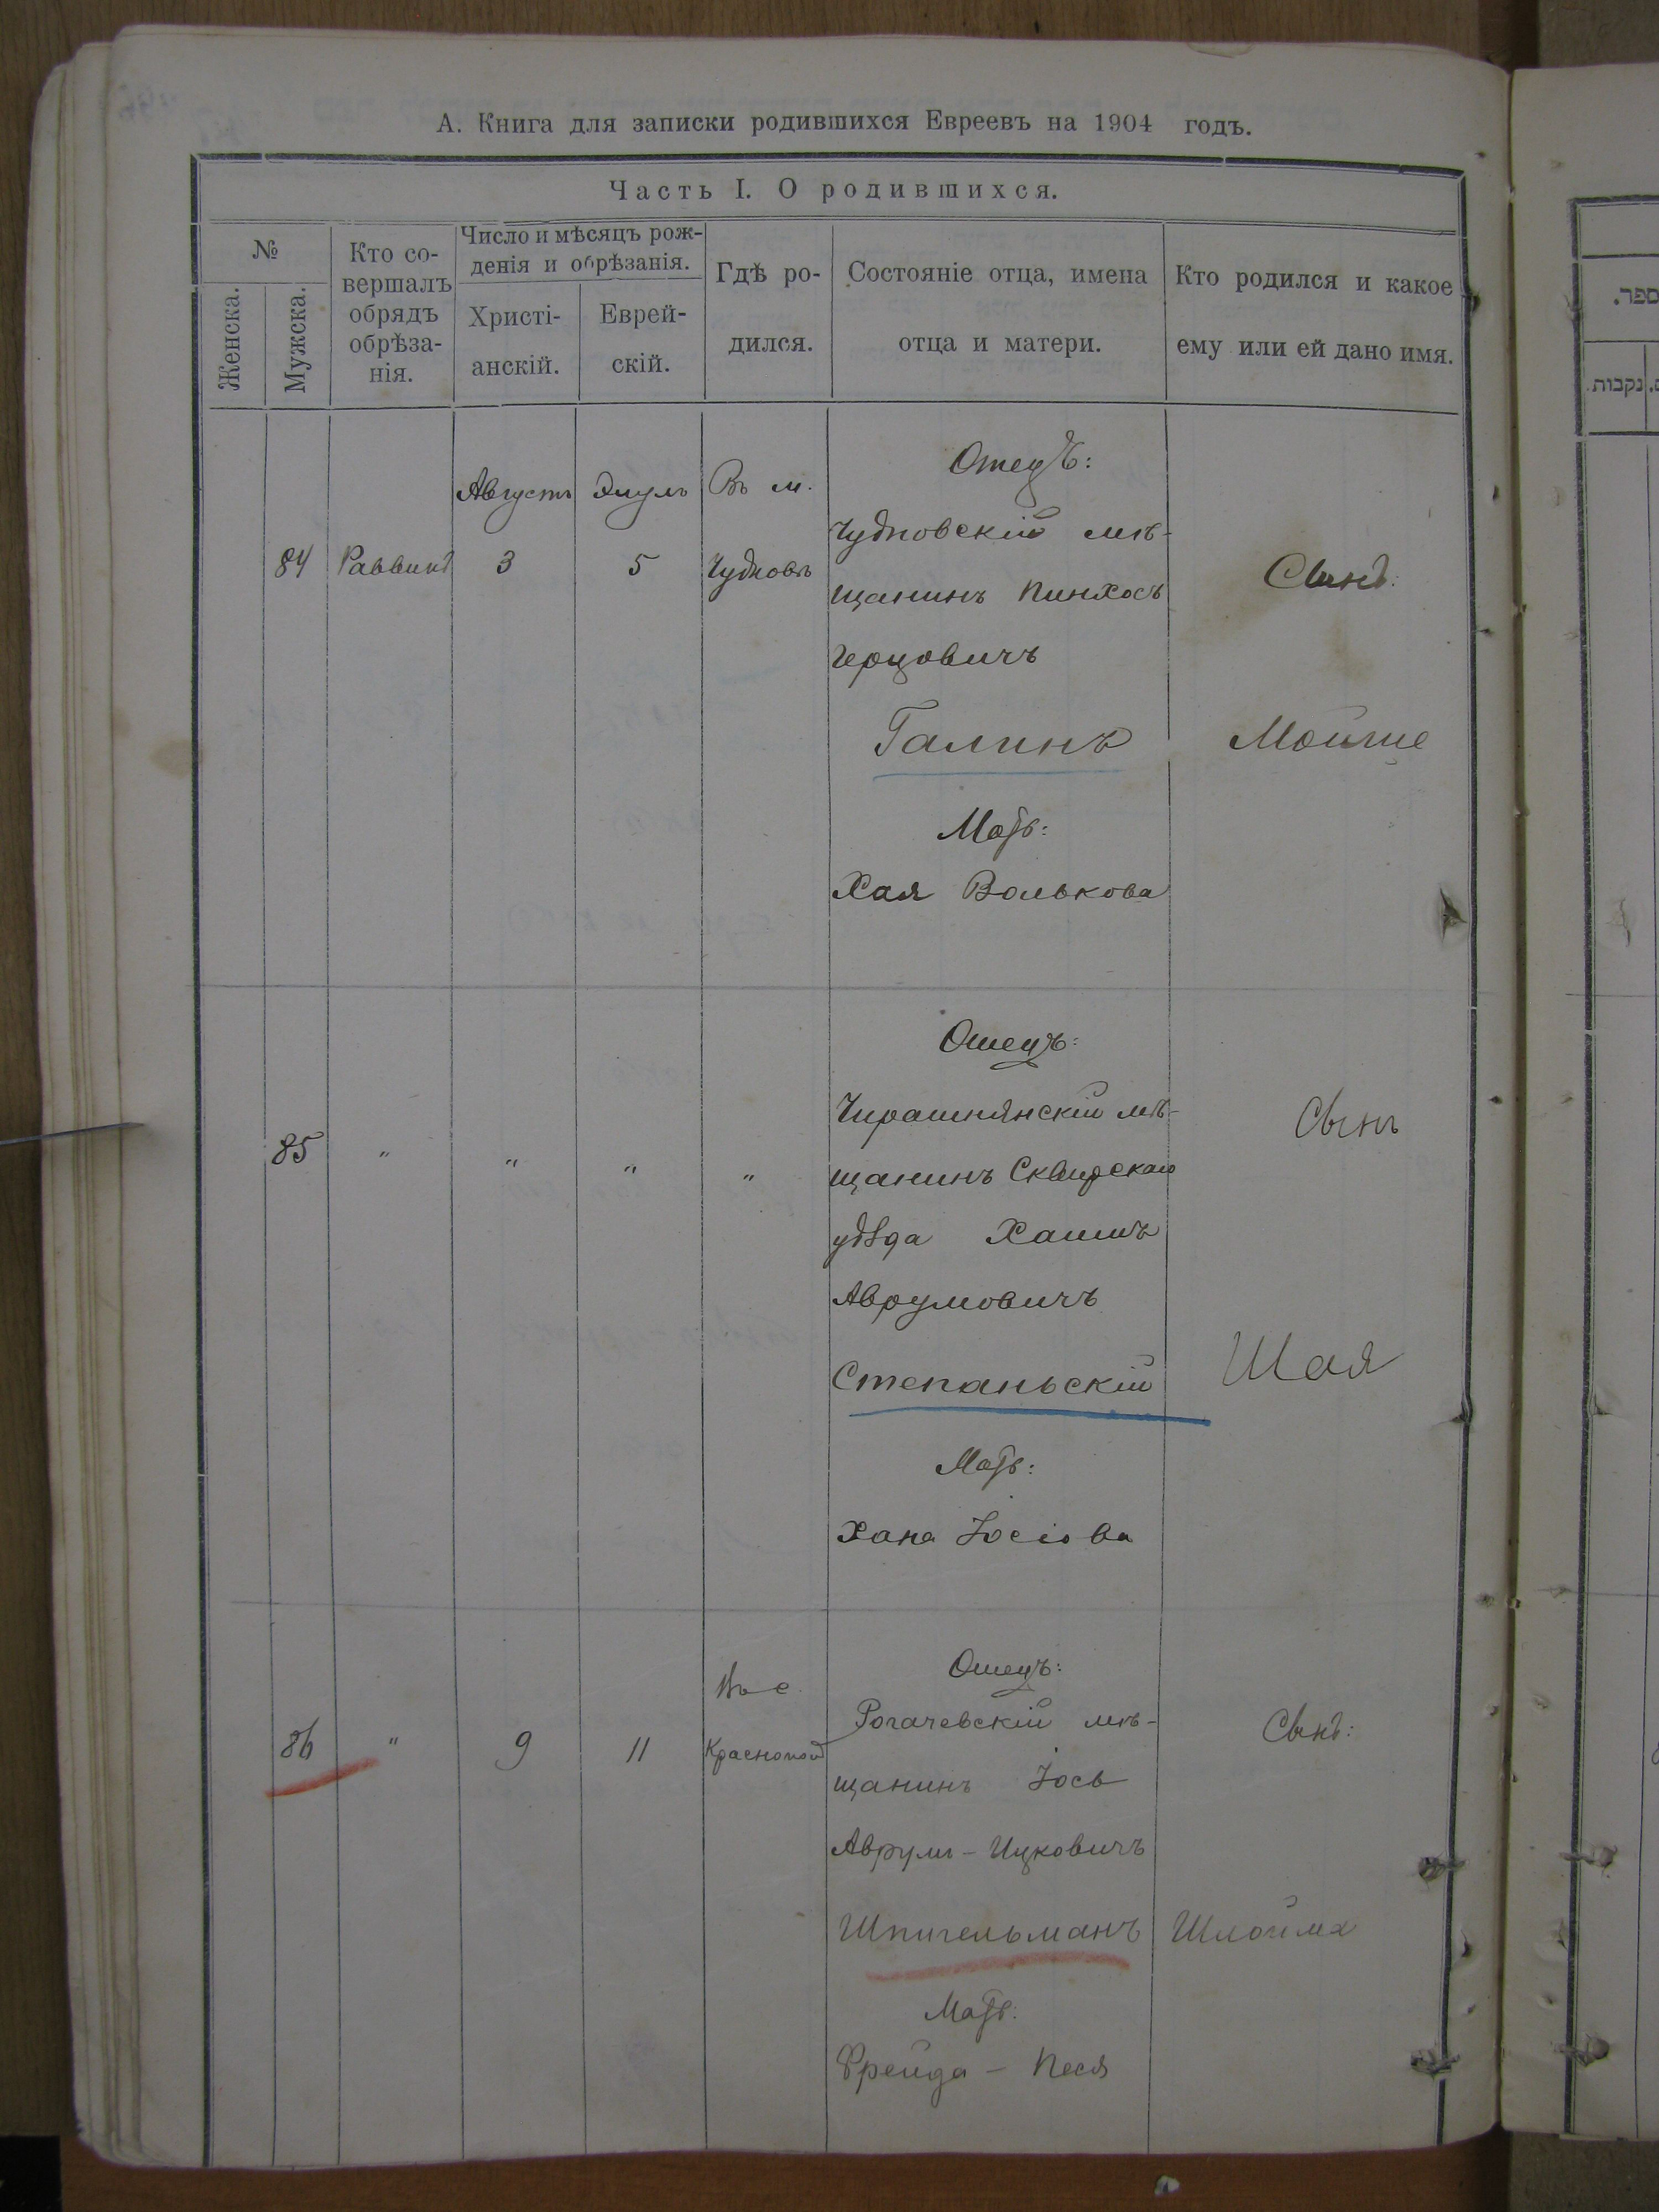 А. Книга для записки родившихся Евреевъ на 1904 годъ.
Часть I. О родившихся.
№
Женска.
Мужска.
Кто со-
вершалъ
обрядъ
обрѣза-
нія.
Число и мѣсяцъ рож-
денія и обрѣзанія.
Христі-
анскій.
Еврей-
скій.
Гдѣ ро-
дился.
Состояніе отца, имена
отца и матери.
Кто родился и какое
ему или ей дано имя.
84
Раввинъ
Августъ
3
Элулъ
5
Въ м.
Чудновъ
Отецъ:
Чудновскій мѣ-
щанинъ Пинхосъ
Герцовичъ
Галинъ
Мать:
Хая Волькова
Сынъ:
Мойше
85
"
"
"
"
Отецъ:
мѣ-
щанинъ Сквирскаго
уѣзда Хаимъ
Аврумовичъ
Степаньскій
Мать:
Хана Іосіова
Сынъ
Шая
86
"
9
11
Въ с.
Отецъ:
Рогачевскій мѣ-
щанинъ Іось
Аврум-Ицковичъ
Шпигельманъ
Мать:
Фрейда - Песя
Сынъ:
Шлойма
ספר.
נקבות